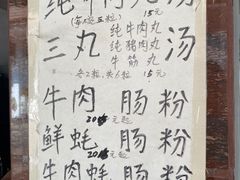 纯牛肉丸汤
(每份五粒) 15元
三丸汤
纯牛肉丸
纯猪肉丸
牛筋丸
各2粒,共6粒 15元
牛肉肠粉
20元起
鲜蚝肠粉
20元起
牛肉蚝肠粉